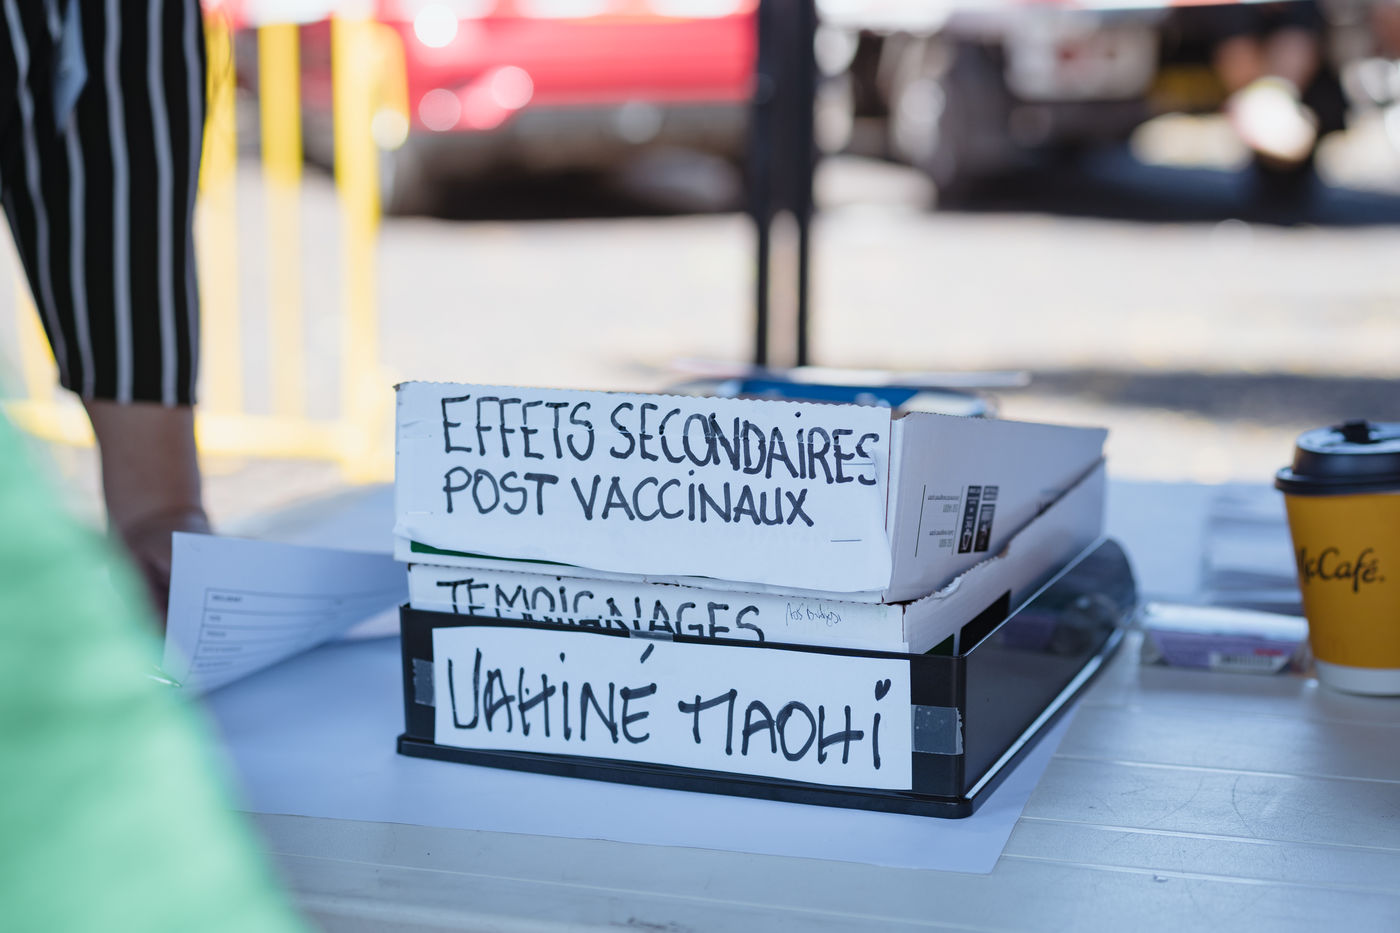 EFFETS SECONDAIRES
POST VACCINAUX
TEMOIGNAGES
VAHINÉ MAOHI
McCafé.